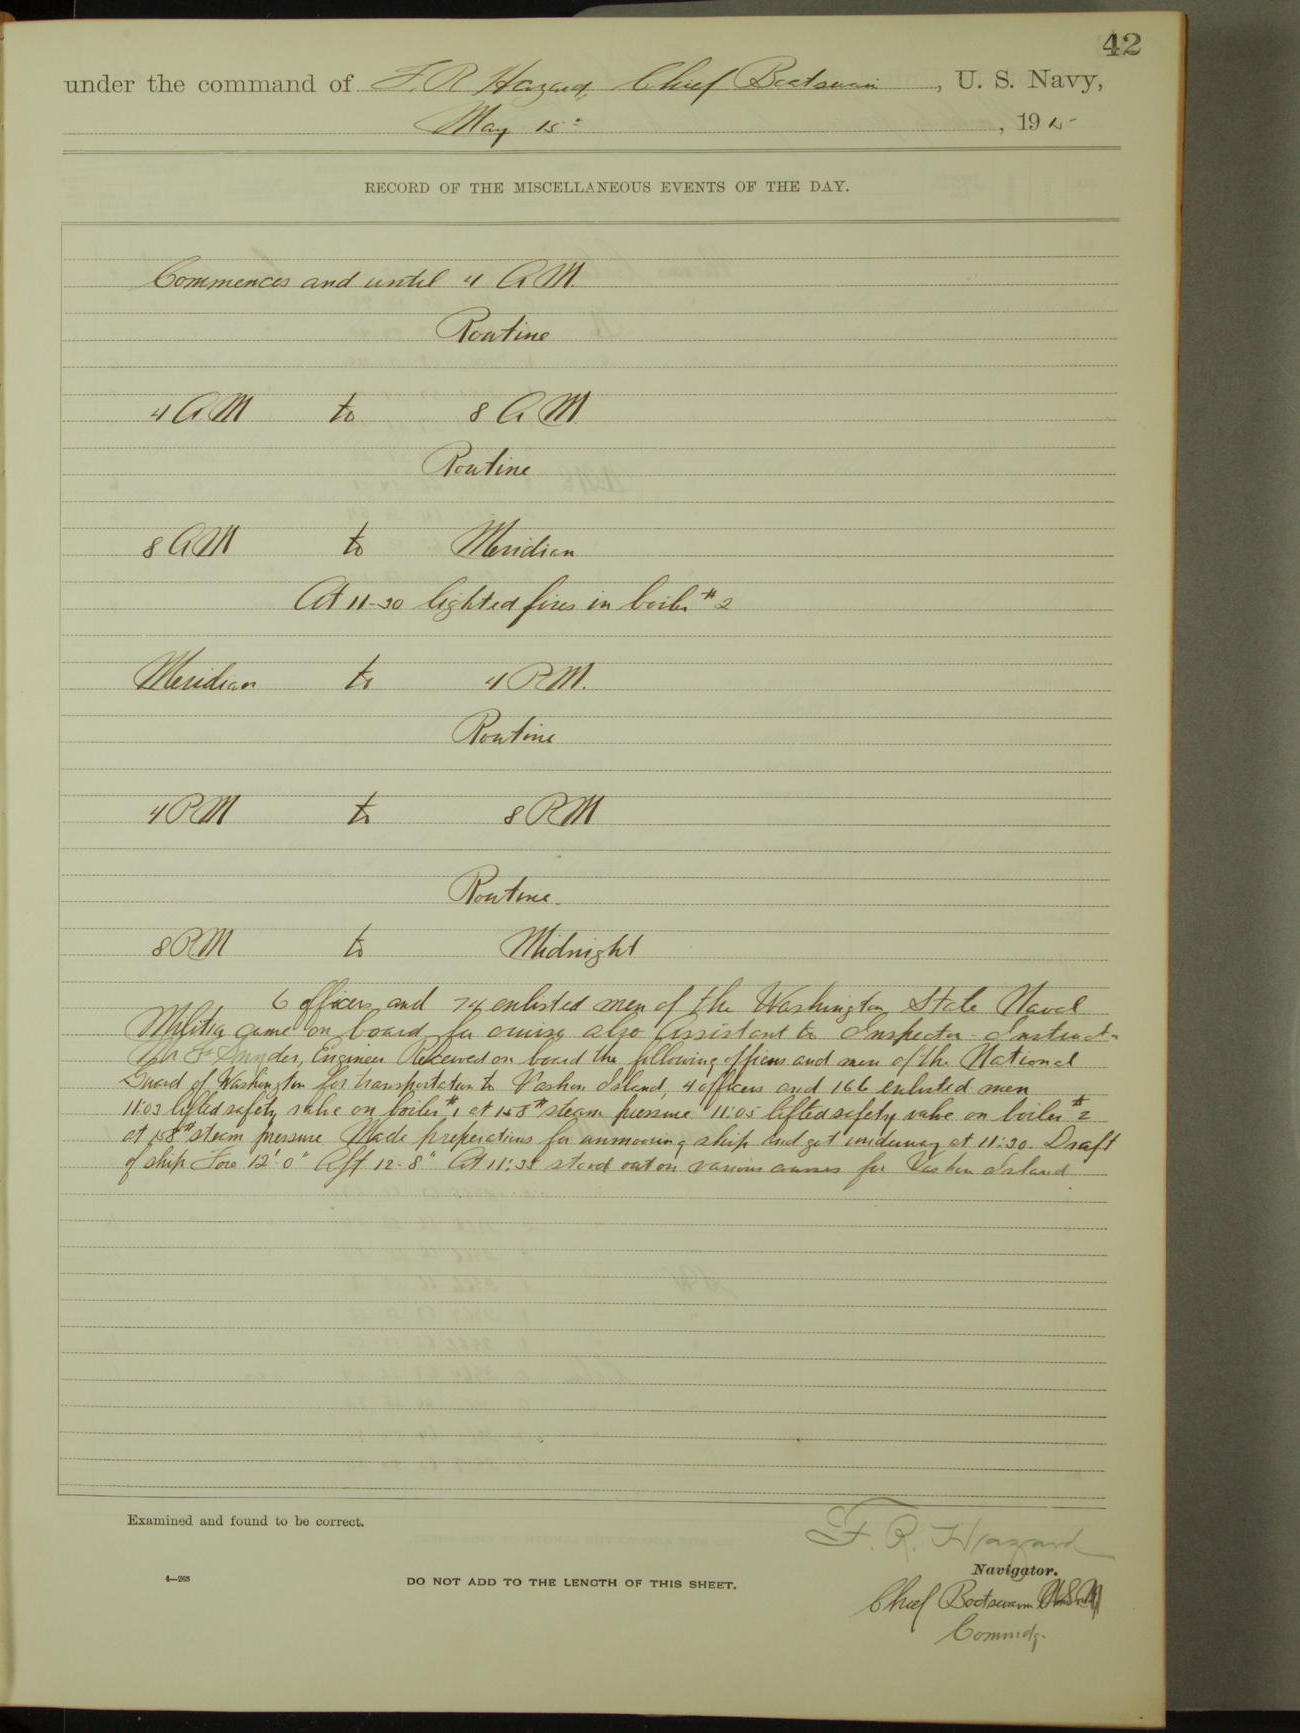 42
under the command of F. R. Hazard, Chief Boatswain, U. S. Navy,
May 15", 1915
RECORD OF THE MISCELLANEOUS EVENTS OF THE DAY.
Commences and until 4 A M.
Routine
4 A M to 8 A M.
Routine
8 A M to Meridian
At 11-30 lighted fires in boiler #2
Meridian to 4 P M.
Routine
4 P M to 8 P M
Routine.
8 P M to Midnight
6 officers and 74 enlisted men of the Washington State Naval
Militia came on board for cruise also Assistant to Inspector-Instructor
Snyder, Engineer Received on board the following officers and men of the National
Guard of Washington for transportation to Vashon Island, 4 officers and 166 enlisted men
11:03 lifted safety valve on boiler #1 at 158# steam pressure 11:05 lifted safety valve on boiler #2
at 158# steam pressure Made preparations for unmooring ship and got underway at 11:30. Draft
of ship Fore 12'-0" Aft 12-8" At 11:35 stood out on various courses for Vashon Island
Examined and found to be correct.
F. R. Hazard
Navigator.
4—268
DO NOT ADD TO THE LENGTH OF THIS SHEET.
Chief Boatswain
Commdg.